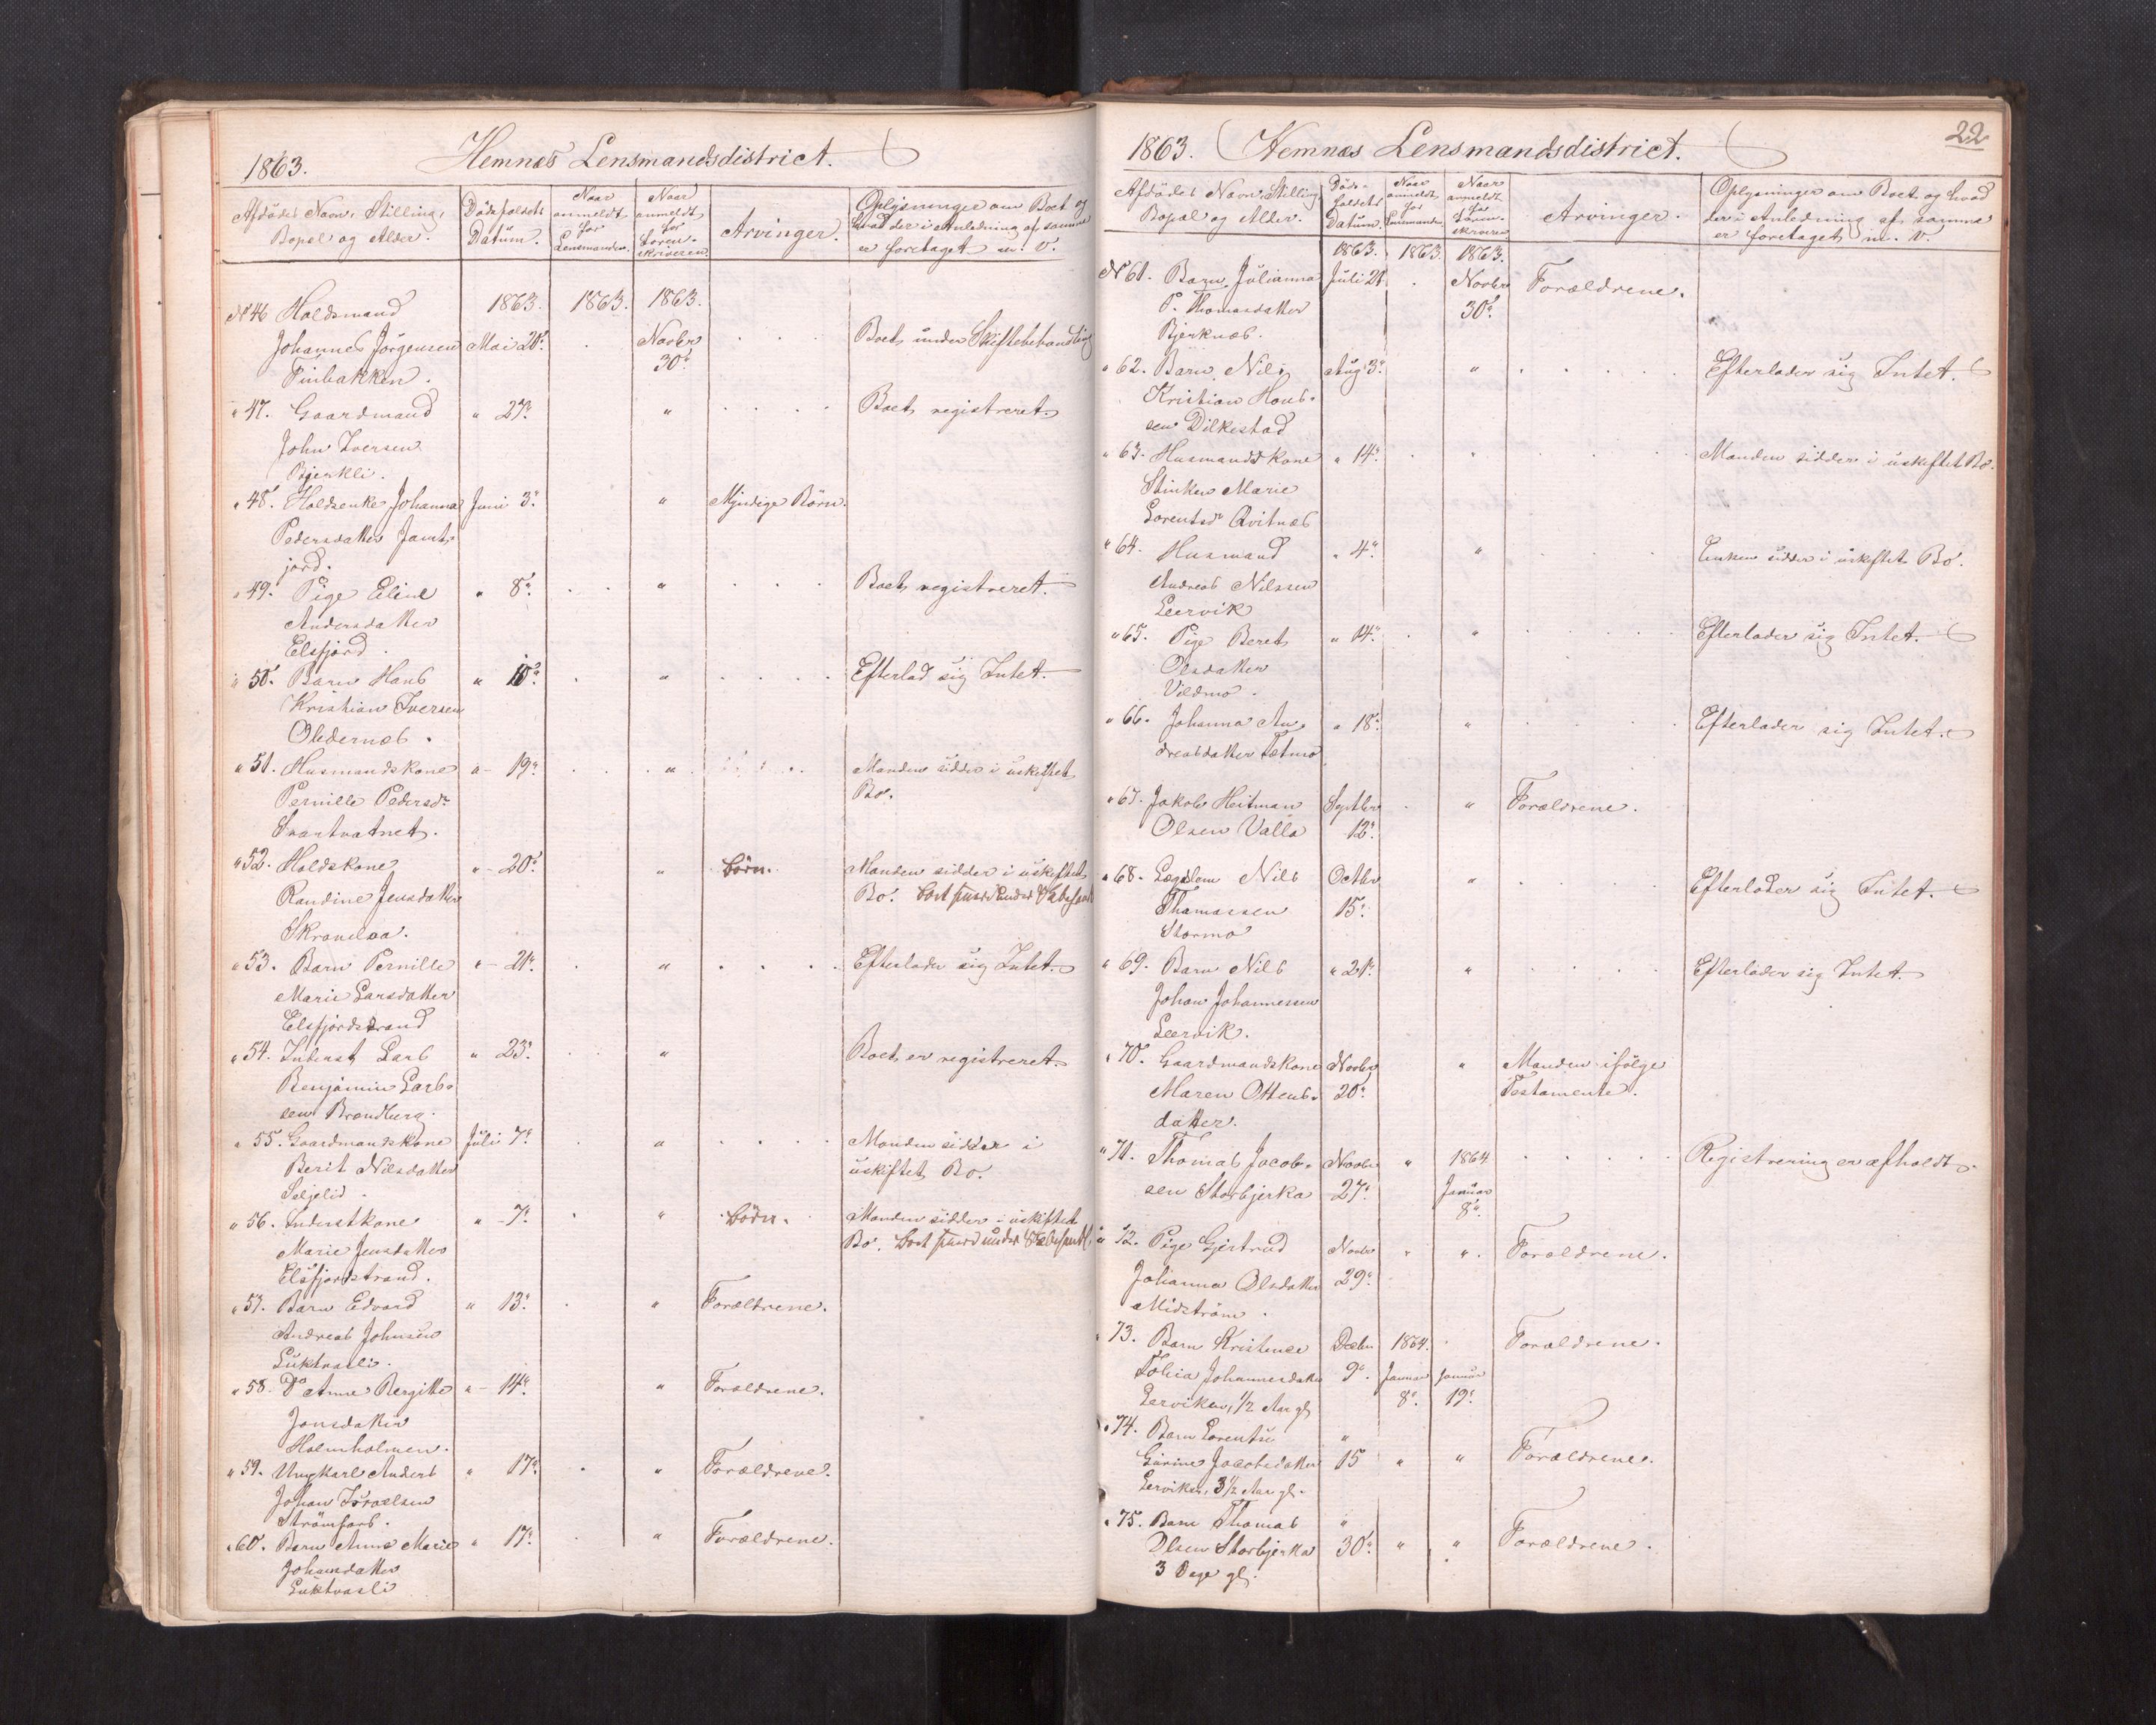 1863. Hemnæs Lensmandsdistrict.
Afdödes Navn, Stilling, Bopæl og Alder.
Dödsfaldets Datum.
Naar anmeldt for Lensmanden.
Naar anmeldt for Soren-skriveren.
Arvinger.
Oplysninger om Boet og hvad der i Anledning af samme er foretaget m. v.
1863. 1863. 1863.
No 46 Holdsmand
Johannes Jörgensen Mai 20. Novbr Boet under Skiftebehandling
Finbakken. 30.
" 47. Gaardmand " 27. " Boet registreret.
John Iversen
Bjerkli.
" 48. Holdsenke Johanna Juni 3. " Myndige Börn.
Pedersdatter Jamt-
jord.
" 49. Pige Eline " 8. " Boet registreret.
Andersdatter
Elsfjord.
" 50. Barn Hans " 10. " Efterlod sig Intet.
Kristian Iversen
Oldernæs.
" 51. Husmandskone " 19. " Manden sidder i uskiftet
Pernille Pedersdr Bo.
Svartvatnet.
" 52. Holdskone " 20. " Börn. Manden sidder i uskiftet
Randine Jensdatter Bo.
" 53. Barn Pernille " 21. " Efterlader sig Intet.
Marie Larsdatter
Elsfjordstrand
" 54. Inderst Lars " 23. " Boet er registreret.
Benjamin Lars-
sen Brendberg.
" 55. Gaardmandskone Juli 7. " Manden sidder i
Berit Nilsdatter uskiftet Bo.
Seljelid.
" 56. Inderstkone " 7. " Börn. Manden sidder i uskiftet
Marie Jensdatter Bo.
Elsfjordstrand.
" 57. Barn Edvard " 13. " Forældrene.
Andreas Johnsen
Luktvasli.
" 58. Do Anne Bergitte " 14. " Forældrene.
Jonsdatter
Holmholmen.
" 59. Ungkarl Anders " 17. " Forældrene.
Johan Israelsen
Strömfors.
" 60. Barn Anne Marie " 17. " Forældrene.
Johansdatter
Luktvasli
22
1863. Hemnæs Lensmandsdistrict.
Afdödes Navn, Stilling, Bopæl og Alder.
Döds-faldets Datum.
Naar anmeldt for Lensmanden
Naar anmeldt for Soren-skriveren
Arvinger.
Oplysninger om Boet og hvad der i Anledning af samme er foretaget m. v.
1863. 1863. 1863.
No 61. Barn Julianna Juli 21 Novbr Forældrene.
P. Thomasdatter 30.
Bjerknæs.
" 62. Barn Nils Aug 3. " Efterlader sig Intet.
Kristian Hans-
sen Dilkestad
" 63. Husmandskone " 14. " Manden sidder i uskiftet Bo.
Stinken Marie
Lorentsdr Qvitnæs
" 64. Husmand " 4. " Enken sidder i uskiftet Bo.
Andreas Nilssen
Leervik
" 65. Pige Beret " 14. " Efterlader sig Intet.
Olsdatter
Vildmo.
" 66. Johanna An- " 18. " Efterlader sig Intet.
dreasdatter Tetmo
" 67. Jakob Heitman Septbr " Forældrene.
Olsen Valla 12.
" 68. Lægdslem Nils Octbr " Efterlader sig Intet.
Thomassen 15.
Stormo
" 69. Barn Nils " 21. " Efterlader sig Intet.
Johan Johannessen
Leervik.
" 70. Gaardmandskone Novbr " Manden ifölge
Maren Ottens- 20. Testamente.
datter.
" 71. Thomas Jacob- Novbr " 1864 Registrering er afholdt.
sen Storbjerka 27. Januar
8.
" 72. Pige Gjertrud Novbr " " Forældrene.
Johanna Olsdatter 29.
Midström.
" 73. Barn Kristence Decbr 1864. Forældrene.
Johannesdatter 9. Januar Januar
Lerviken, 1/2 Aar gl. 8. 19.
" 74. Barn Lorentse "
Gurine Jacobsdatter 15 " " Forældrene.
Lerviken, 3 1/2 Aar gl.
" 75. Barn Thomas "
Olsen Storbjerka 30. " " Forældrene.
3 Dage gl.